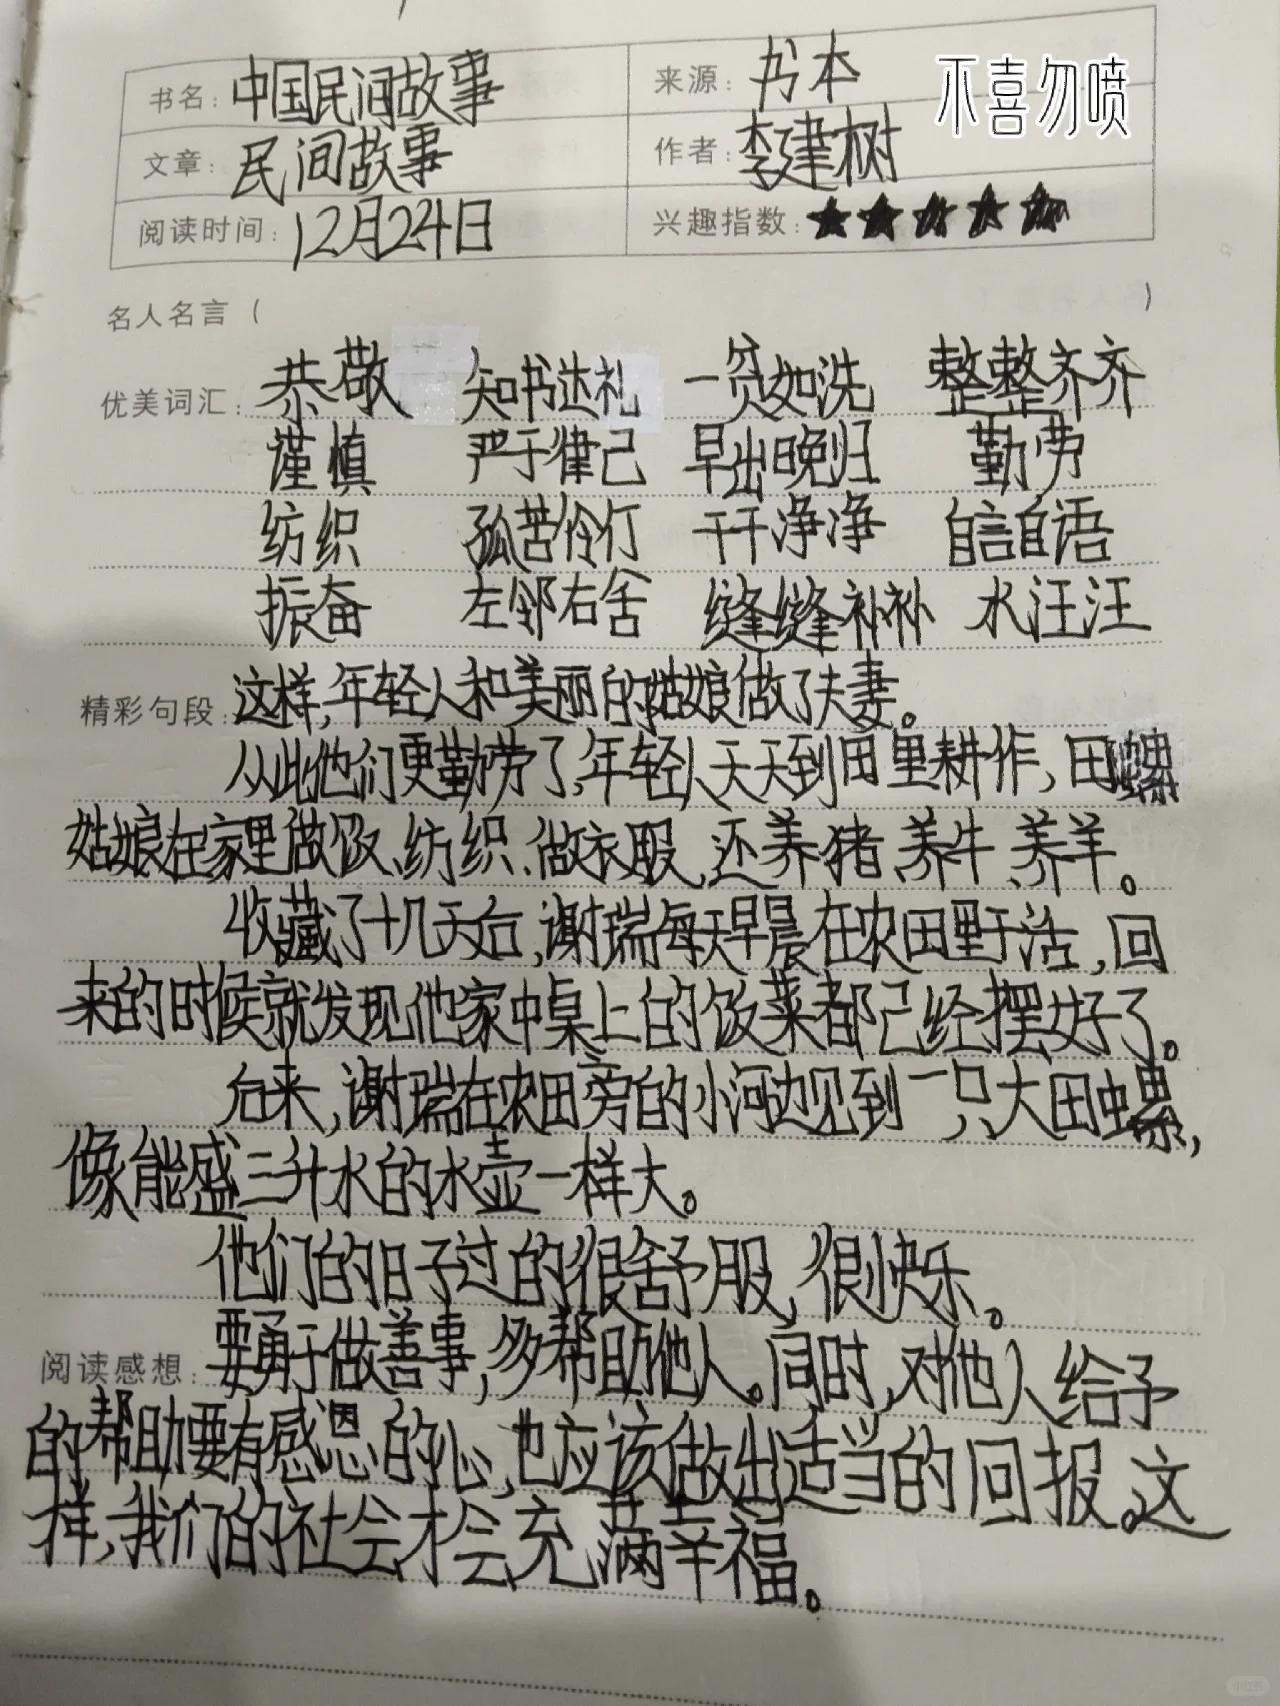 书名：中国民间故事 来源：书本 不喜勿喷
文章：民间故事 作者：李建树
阅读时间：12月24日 兴趣指数：★★★★★
名人名言（ ）
优美词汇：恭敬 知书达礼 一贫如洗 整整齐齐
谨慎 严于律己 早出晚归 勤劳
纺织 孤苦伶仃 干干净净 自言自语
振奋 左邻右舍 缝缝补补 水汪汪
精彩句段：这样，年轻人和美丽的姑娘做了夫妻。
从此他们更勤劳了，年轻人天天到田里耕作，田螺
姑娘在家里做饭、纺织、做衣服，还养猪、养牛、养羊。
收藏了十几天后，谢瑞每天早晨在农田里干活，回
来的时候就发现他家中桌上的饭菜都已经摆好了。
后来，谢瑞在农田旁的小河边见到一只大田螺，
像能盛三升水的水壶一样大。
他们的日子过的很舒服，很快乐。
阅读感想：要勇于做善事，多帮助他人。同时，对他人给予
的帮助要有感恩的心，也应该做出适当的回报。这
样，我们的社会才会充满幸福。
小红书